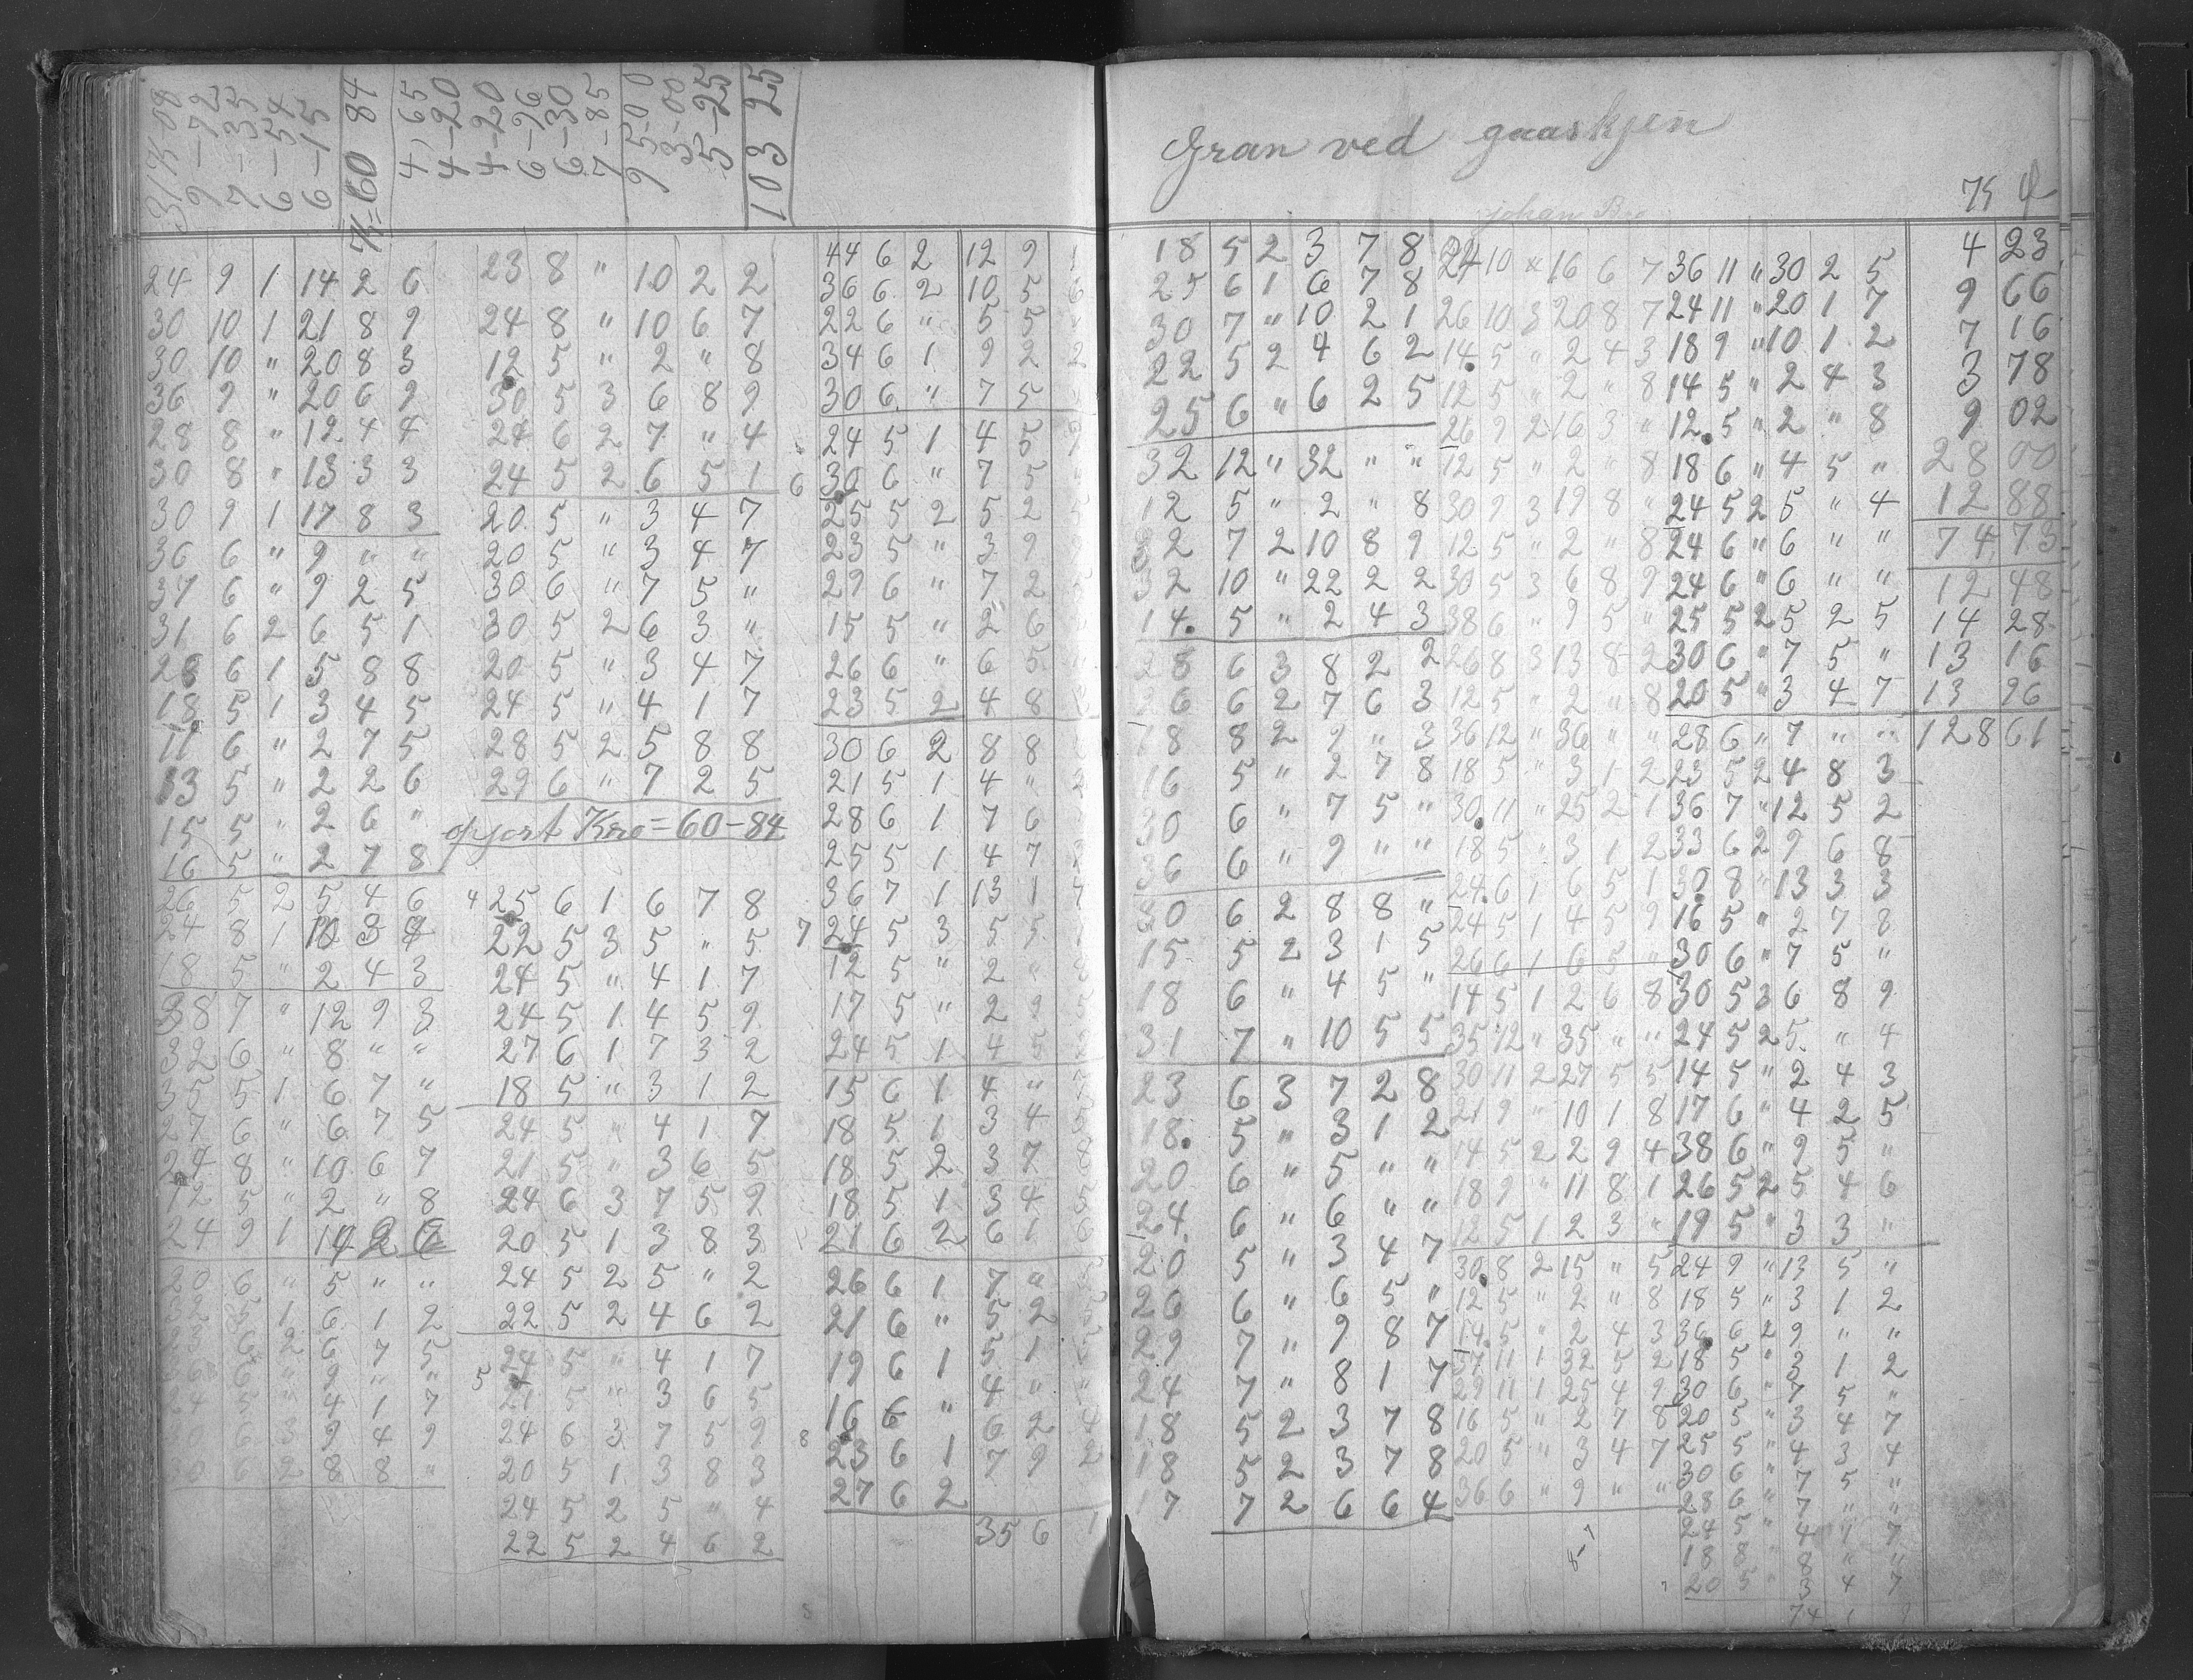 31 K-08
9-72
7-35
6-54
6-15
K=60 84
4,65
4-20
4-20
6-76
6-30
7-85
95-00
3-00
5-25
103 25
24 9 1 14 2 6
30 10 1 21 8 9
30 10 " 20 8 3
36 9 " 20 6 9
28 8 " 12 4 4
30 8 " 13 3 3
30 9 1 17 8 3
36 6 " 9 " "
37 6 " 9 2 5
31 6 2 6 5 1
26 6 1 5 8 8
18 5 1 3 4 5
11 6 " 2 7 5
13 5 " 2 2 6
15 5 " 2 6 "
16 5 " 2 7 8
26 5 2 5 4 6
24 8 1 10 3 4
18 5 " 2 4 3
38 7 " 12 9 3
32 6 " 8 " "
35 5 1 6 7 "
27 6 " 6 7 5
24 8 " 10 6 7
12 5 " 2 " 8
24 9 1 14 2 6
20 6 " 5 " "
32 5 1 6 1 2
23 6 2 6 7 5
36 6 " 9 " "
24 5 " 4 1 7
30 6 3 9 4 9
30 6 2 8 8 "
23 8 " 10 2 2
24 8 " 10 6 7
12 5 " 2 " 8
30 5 3 6 8 9
24 6 2 7 " 4
24 5 2 6 5 1
20 5 " 3 4 7
20 5 " 3 4 7
30 6 " 7 5 "
30 5 2 6 3 "
20 5 " 3 4 7
24 5 " 4 1 7
28 5 2 5 8 8
29 6 " 7 2 5
opjort Kro=60-84
4 25 6 1 6 7 8
22 5 3 5 " 5
24 5 " 4 1 7
24 5 1 4 5 9
27 6 1 7 3 2
18 5 " 3 1 2
24 5 " 4 1 7
21 5 " 3 6 5
24 6 3 7 5 9
20 5 1 3 8 3
24 5 2 5 " 2
22 5 2 4 6 2
5 24 5 " 4 1 7
21 5 " 3 6 5
24 6 3 7 5 9
20 5 1 3 8 3
24 5 2 5 " 4
22 5 2 4 6 2
44 6 2 12 9 1
36 6 2 10 5 6
22 6 " 5 5 "
34 6 1 9 2 2
30 6 " 7 5 "
24 5 1 4 5 9
6 30 6 " 7 5 "
25 5 2 5 2 5
23 5 " 3 9
29 6 " 7 2 5
15 5 " 2 6 "
26 6 " 6 5 "
23 5 2 4 8
30 6 2 8 8
21 5 1 4 " 2
28 6 1 7 6
25 5 1 4 7
36 7 1 13 1 7
7 24 5 3 5 5
12 5 " 2 "
17 5 " 2 9
24 5 1 4 5
15 6 1 4 "
18 5 1 3 4 5
18 5 2 3 7 8
18 5 1 3 4 5
21 6 2 6 1 6
26 6 1 7 "
21 6 " 5 2
19 6 1 5 1
16 6 " 4 " "
8 23 6 1 6 2 4
27 6 2 7 9 2
35 6 1
Gran ved gaaskjen
johan
K
18 5 2 3 7 8
25 6 1 6 7 8
30 7 " 10 2 1
22 5 2 4 6 2
25 6 " 6 2 5
32 12 " 32 " "
12 5 " 2 " 8
32 7 2 10 8 9
32 10 " 22 2 2
14 5 " 2 4 3
28 6 3 8 2 2
26 6 2 7 6 3
18 8 2 9 " 3
16 5 " 2 7 8
30 6 " 7 5 "
36 6 " 9 " "
30 6 2 8 8 "
15 5 2 3 1 5
18 6 " 4 5 "
31 7 " 10 5 5
23 6 3 7 2 8
18 5 " 3 1 2
20 6 " 5 " "
24 6 " 6 " "
20 5 " 3 4 7
26 6 " 6 5 "
29 7 " 9 8 7
24 7 " 8 1 7
18 5 2 3 7 8
18 5 2 3 7 8
17 7 2 6 6 4
24 10 x 16 6 7
26 10 3 20 8 7
14 5 " 2 4 3
12 5 " 2 " 8
26 9 2 16 3 "
12 5 " 2 " 8
30 9 3 19 8 "
12 5 " 2 " 8
30 5 3 6 8 9
38 6 " 9 5 "
26 8 3 13 8 2
12 5 " 2 " 8
36 12 " 36 " "
18 5 " 3 1 2
30 11 " 25 2 1
18 5 " 3 1 2
24 6 1 6 5 1
24 5 1 4 5 9
26 6 1 6 5 "
14 5 1 2 6 8
35 12 " 35 " "
30 11 2 27 5 5
21 9 " 10 1 8
14 5 2 2 9 4
18 9 " 11 8 1
12 5 1 2 3 "
30 8 2 15 " 5
12 5 " 2 " 8
14 5 " 2 4 3
37 11 1 32 5 2
29 11 1 25 4 9
16 5 " 2 7 8
20 5 " 3 4 7
36 6 " 9 " "
36 11 " 30 2 5
24 11 " 20 1 7
18 9 " 10 1 2
14 5 " 2 4 3
12 5 " 2 " 8
18 6 " 4 5 "
24 5 2 5 " 4
24 6 " 6 " "
24 6 " 6 " "
25 5 2 5 2 5
30 6 " 7 5 "
20 5 " 3 4 7
28 6 " 7 " "
23 5 2 4 8 3
36 7 " 12 5 2
33 6 2 9 6 8
30 8 " 13 3 3
16 5 " 2 7 8
30 6 " 7 5 "
30 5 3 6 8 9
24 5 2 5 " 4
14 5 " 2 4 3
17 6 " 4 2 5
38 6 " 9 5 "
26 5 2 5 4 6
19 5 " 3 3 "
24 9 " 13 5 "
18 5 " 3 1 2
36 6 2 9 " "
18 5 " 3 1 2
30 6 " 7 5 "
20 5 " 3 4 7
25 5 " 4 3 4
30 6 " 7 5 "
28 6 " 7 " "
24 5 " 4 1 7
18 8 " 8 " "
20 5 " 3 4 7
74 1
4 23
9 66
7 16
3 78
9 02
28 00
12 88
74 73
12 48
14 28
13 16
13 96
128 61